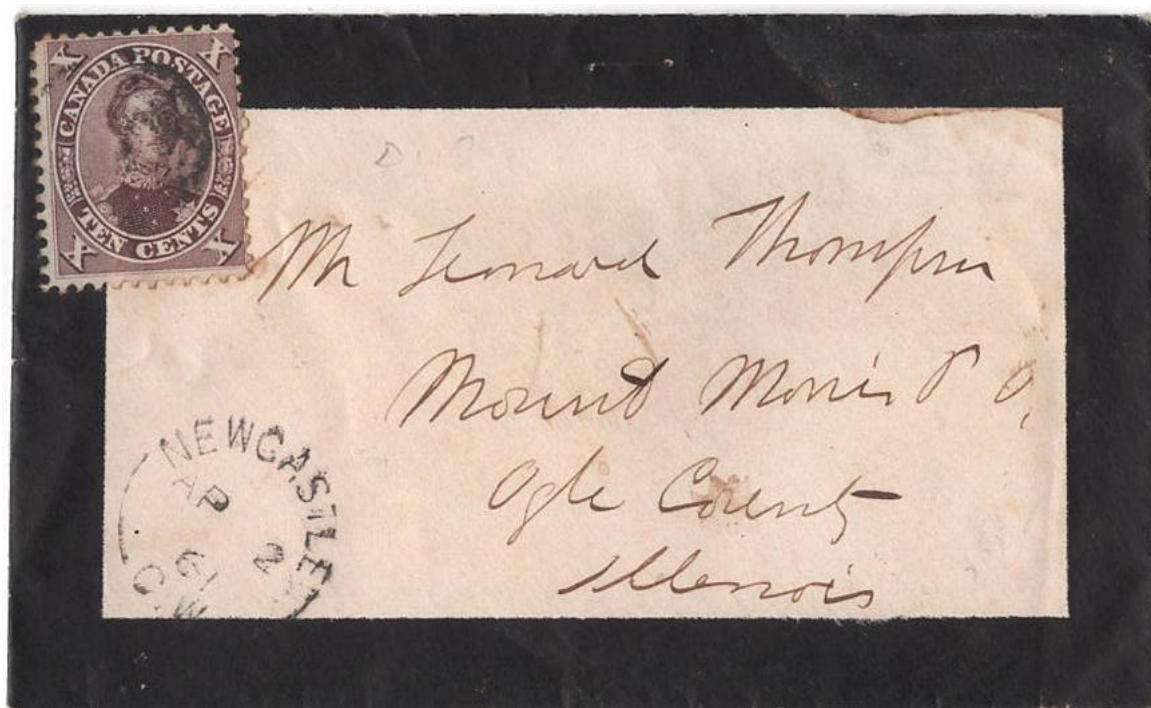 X X
CANADA POSTAGE
TEN CENTS
X X
Mr Leonard Thompson
Mount Morris P O,
Ogle County
Illenois
NEWCASTLE
AP 2
61
C.W